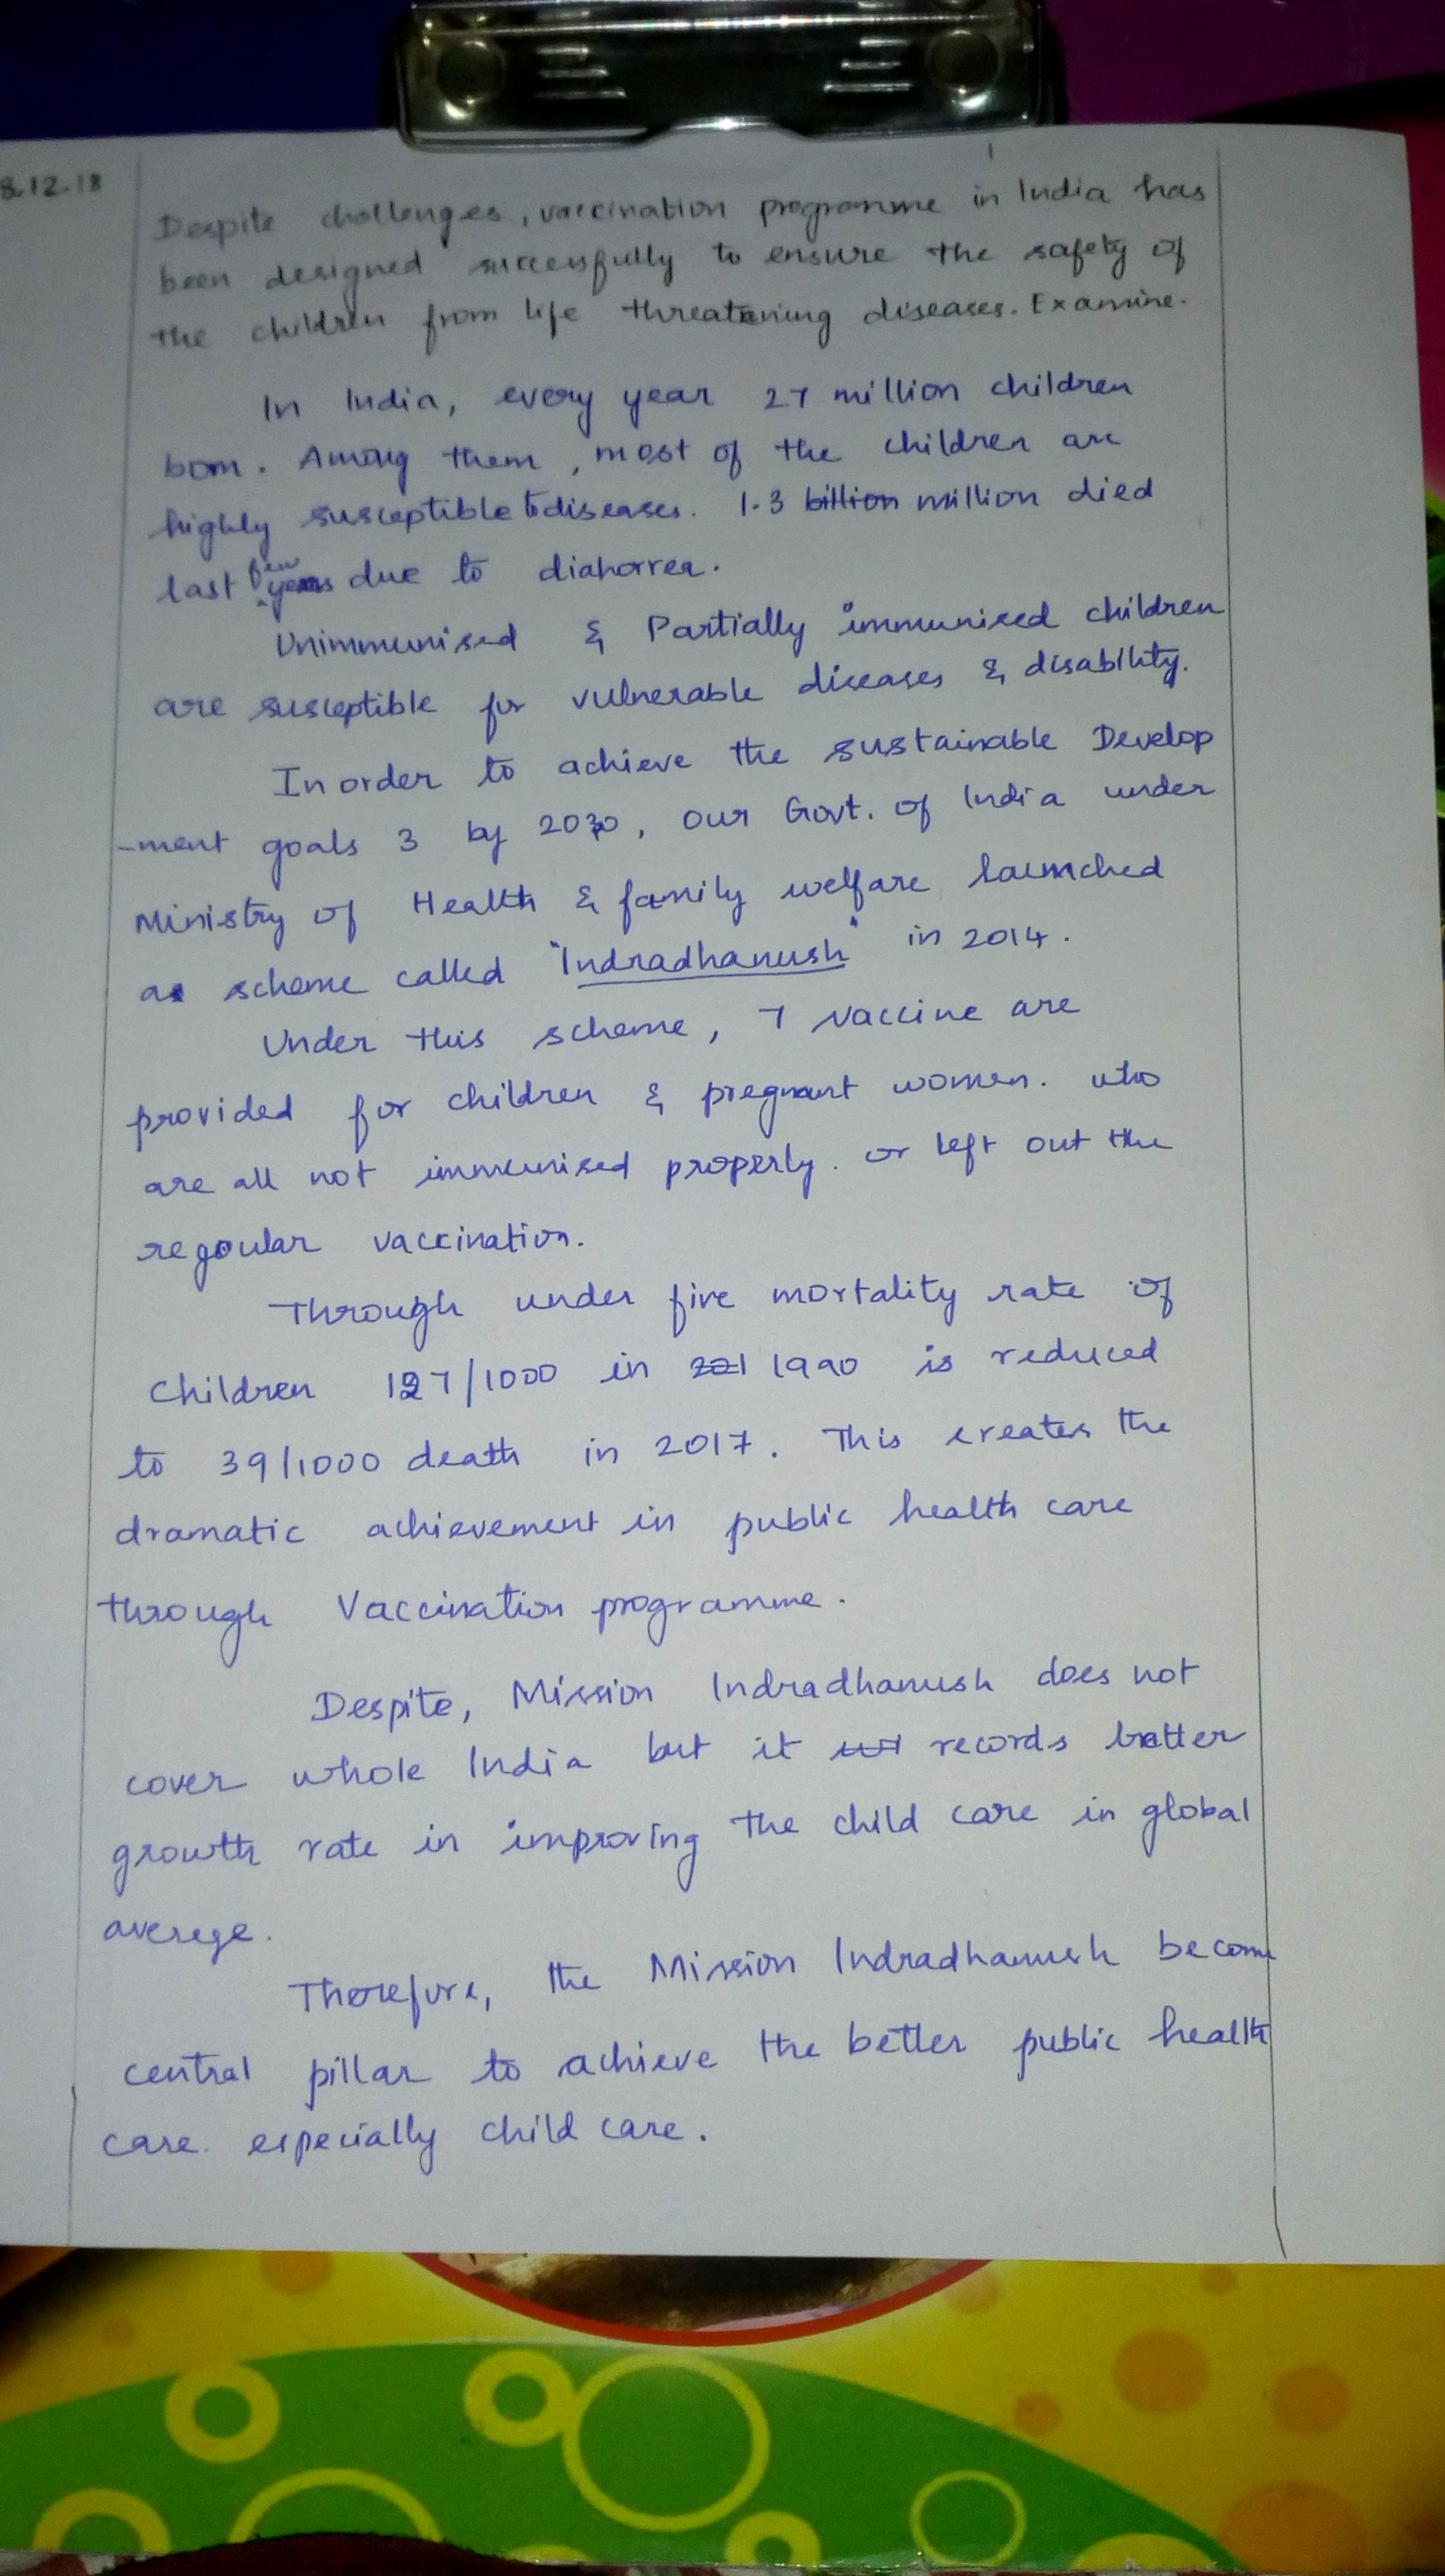 8.12.18
Despite challenges, vaccination programme in India has
been designed successfully to ensure the safety of
the children from life threatening diseases. Examine.
In India, every year 27 million children
born. Among them, most of the children are
highly susceptible to diseases. 1.3 billion million died
last few years due to diahorrea.
Unimmunised & Partially immunised children
are susceptible for vulnerable diseases & disability.
In order to achieve the sustainable Develop
-ment goals 3 by 2030, our Govt. of India under
Ministry of Health & family welfare launched
a scheme called "Indradhanush" in 2014.
Under this scheme, 7 vaccine are
provided for children & pregnant women. who
are all not immunised properly. or left out the
regoular vaccination.
Through under five mortality rate of
Children 127/1000 in 1990 is reduced
to 39/1000 death in 2017. This creates the
dramatic achievement in public health care
through Vaccination programme.
Despite, Mission Indradhanush does not
cover whole India but it records better
growth rate in improving the child care in global
averege.
Therefore, the Mission Indradhanush become
central pillar to achieve the better public health
care. especially child care.